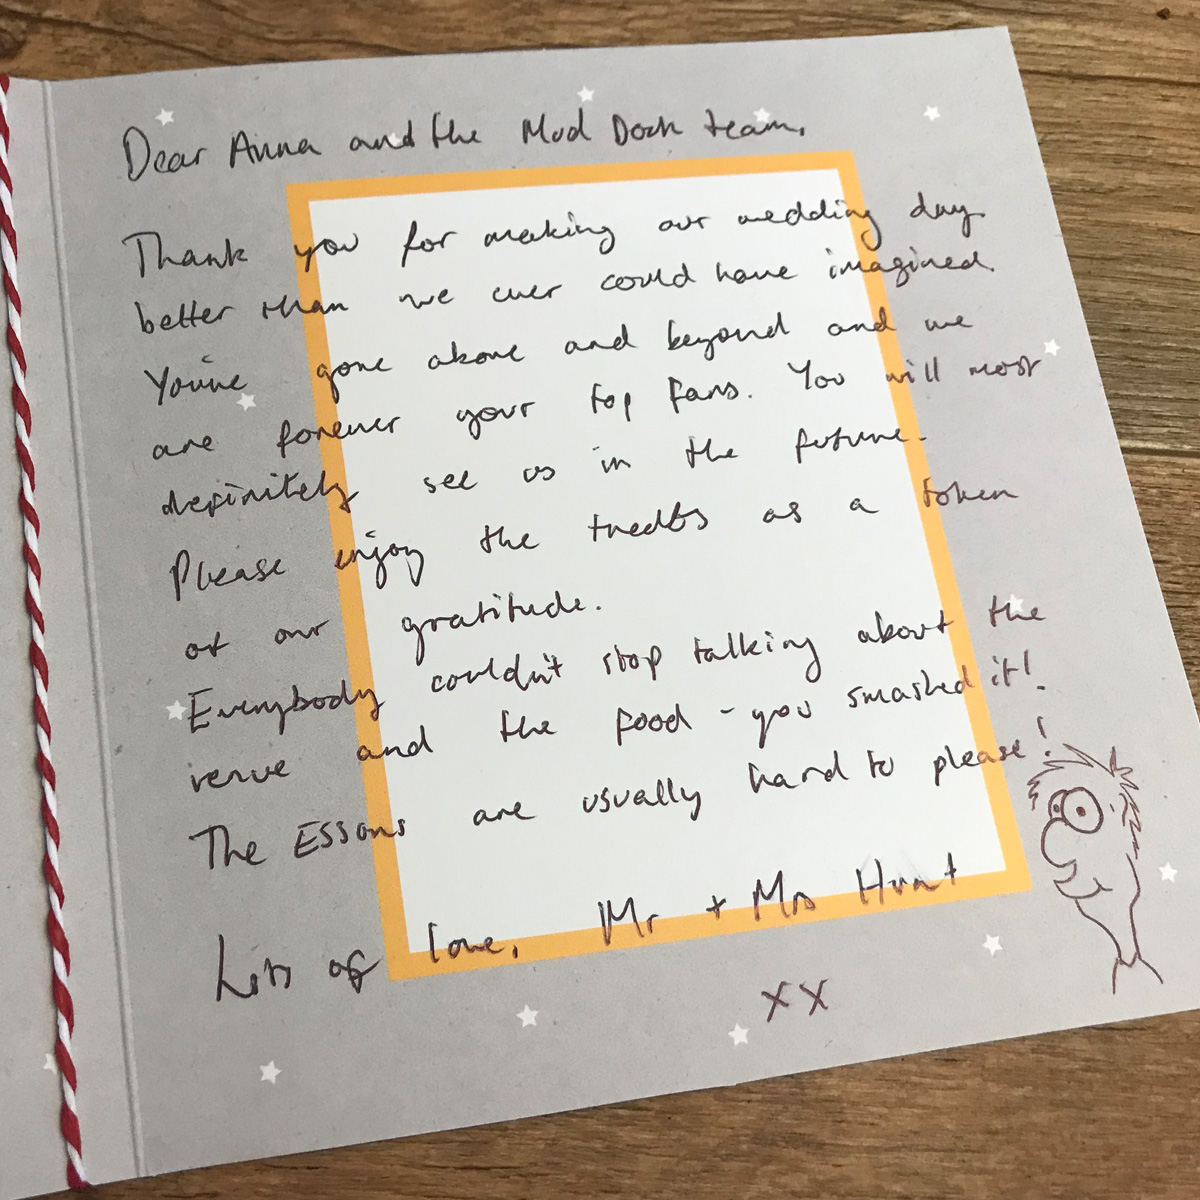 Dear Anna and the Mud Dock team,
Thank you for making our wedding day
better than we ever could have imagined.
You've gone above and beyond and we
are forever your top fans. You will most
definitely see us in the future.
Please enjoy the treats as a token
of our gratitude.
Everybody couldn't stop talking about the
venue and the food - you smashed it!
The Essons are usually hard to please!
Lots of love, Mr + Mrs Hunt
xx